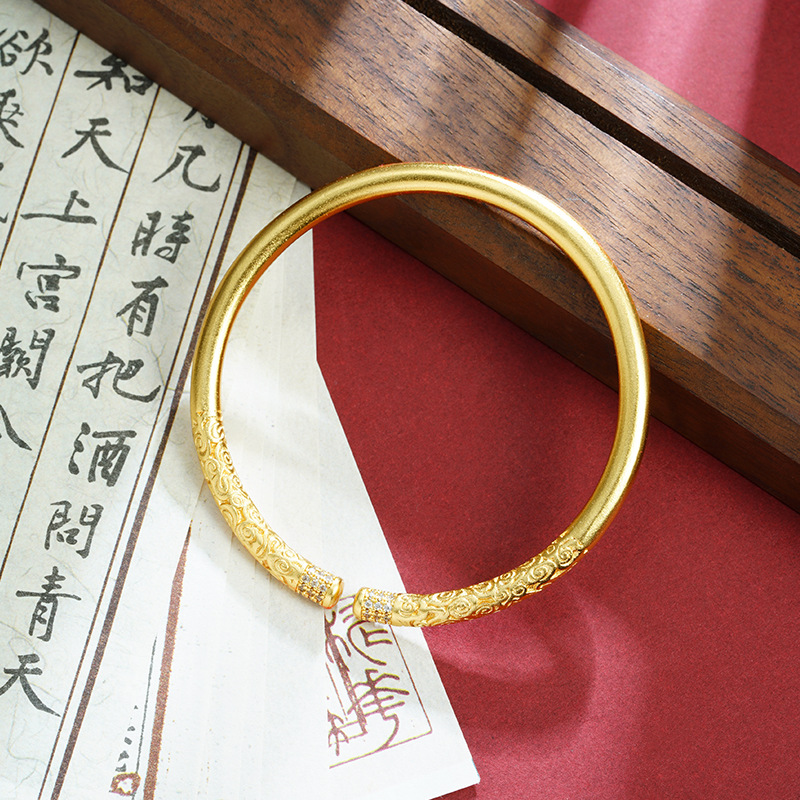 几時有把酒問青天
知天上宮闕
欲乘